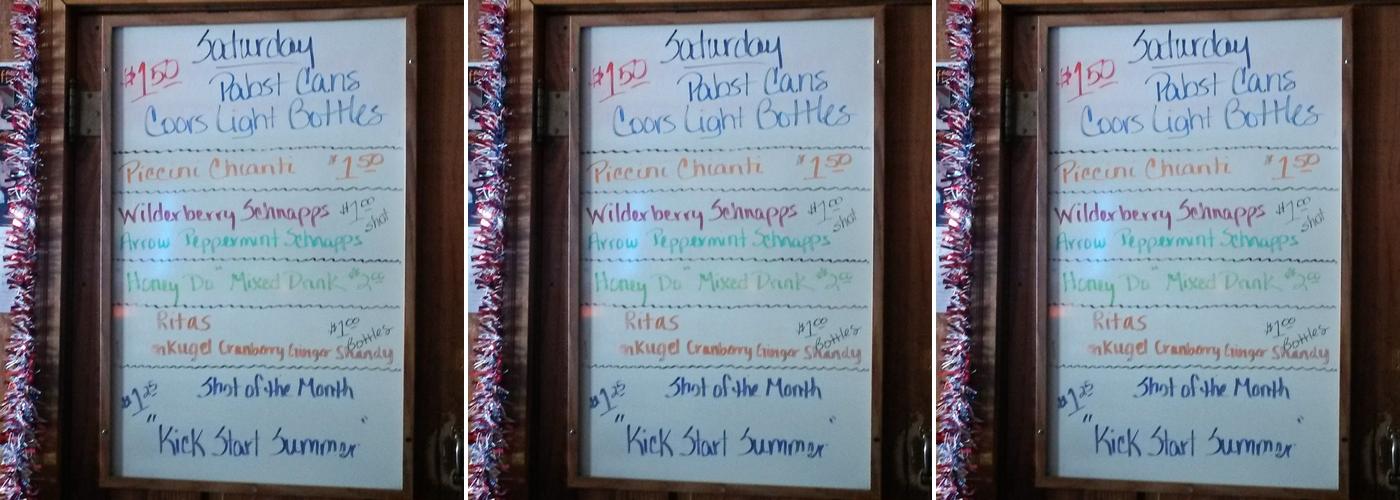 Saturday
$1.50 Pabst Cans
Coors Light Bottles
Piccini Chianti $1.50
Wilderberry Schnapps $1.00 shot
Arrow Peppermint Schnapps
Honey Do" Mixed Drink $2.00
Ritas $1.00 Bottles
nKugel Cranberry Ginger Shandy
$1.25 Shot of the Month
"Kick Start Summer"
Saturday
$1.50 Pabst Cans
Coors Light Bottles
Piccini Chianti $1.50
Wilderberry Schnapps $1.00 shot
Arrow Peppermint Schnapps
Honey Do" Mixed Drink $2.00
Ritas $1.00 Bottles
nKugel Cranberry Ginger Shandy
$1.25 Shot of the Month
"Kick Start Summer"
Saturday
$1.50 Pabst Cans
Coors Light Bottles
Piccini Chianti $1.50
Wilderberry Schnapps $1.00 shot
Arrow Peppermint Schnapps
Honey Do" Mixed Drink $2.00
Ritas $1.00 Bottles
nKugel Cranberry Ginger Shandy
$1.25 Shot of the Month
"Kick Start Summer"